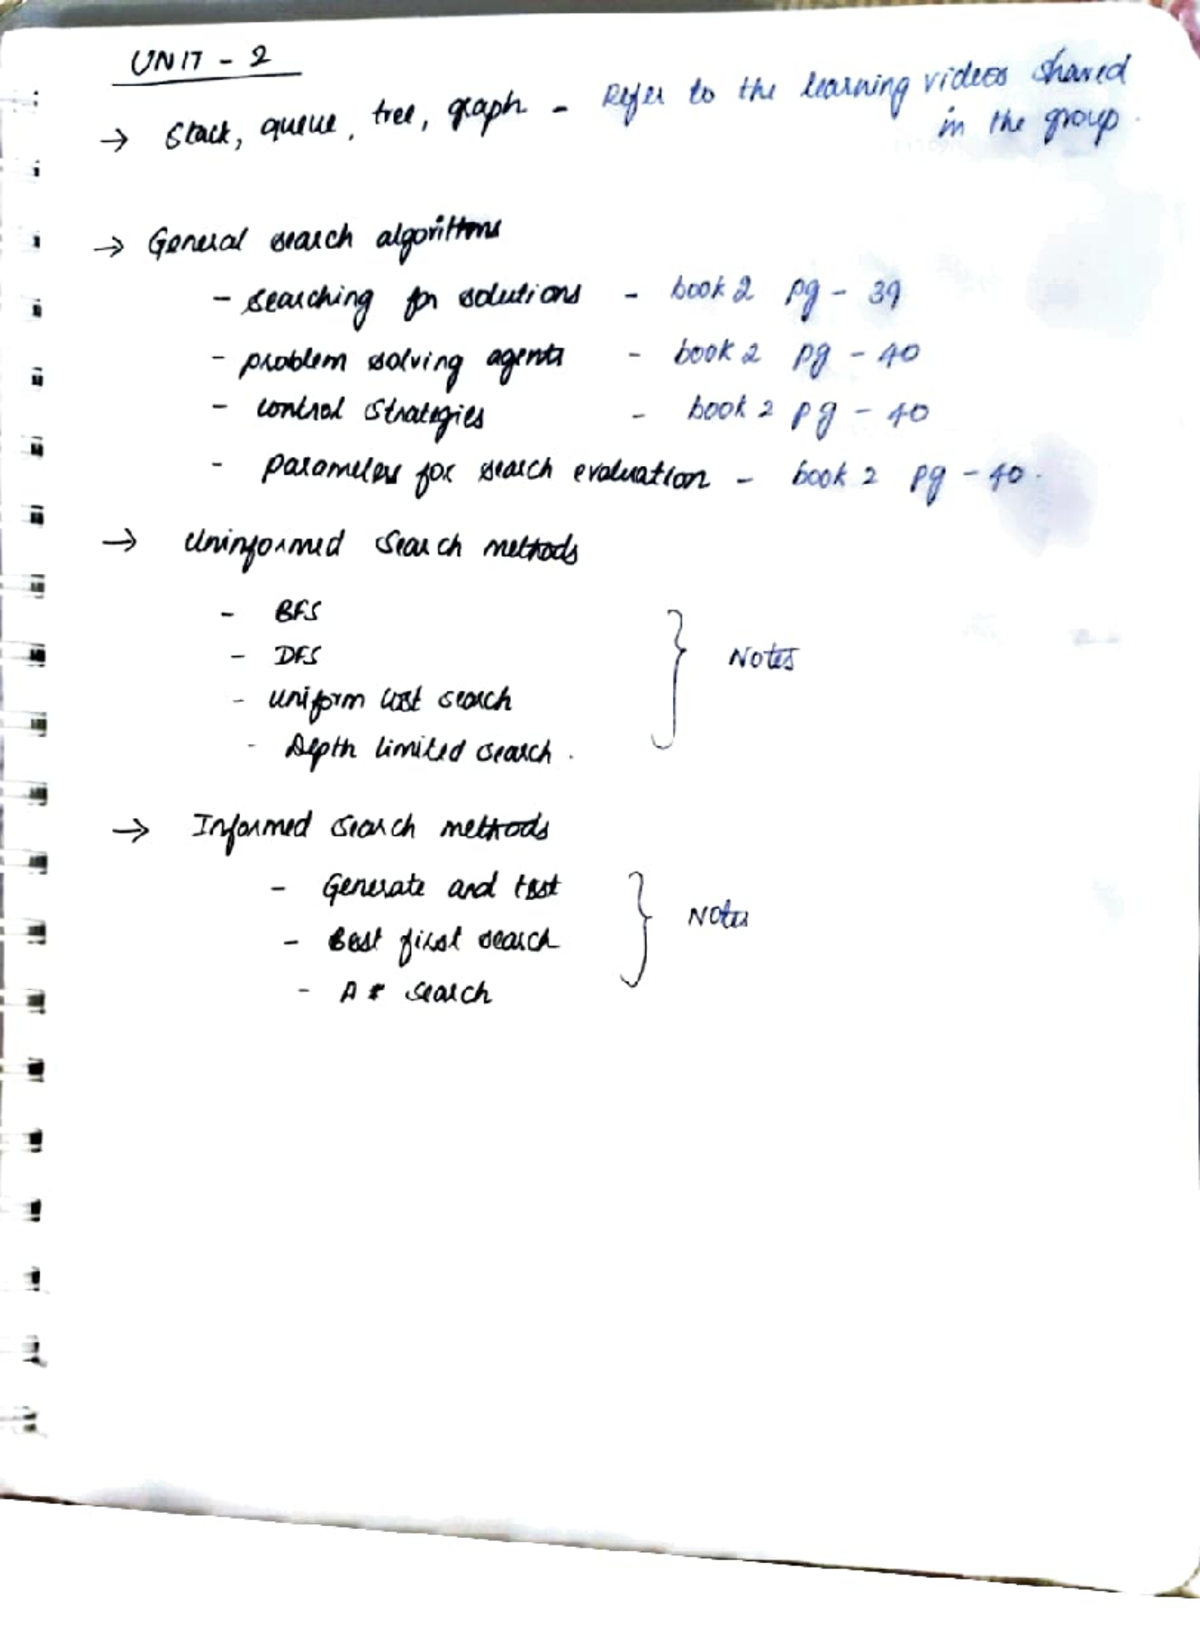 UNIT - 2
→ Stack, queue, tree, graph - Refer to the learning videos shared
in the group.
→ General search algorithms
- searching for solutions - book 2 pg - 39
- problem solving agents - book 2 pg - 40
- control strategies - book 2 pg - 40
- parameters for search evaluation - book 2 pg - 40.
→ Uninformed search methods
- BFS
- DFS
- uniform cost search
- Depth limited search.
Notes
→ Informed search methods
- Generate and test
- Best first search
- A* search
Notes